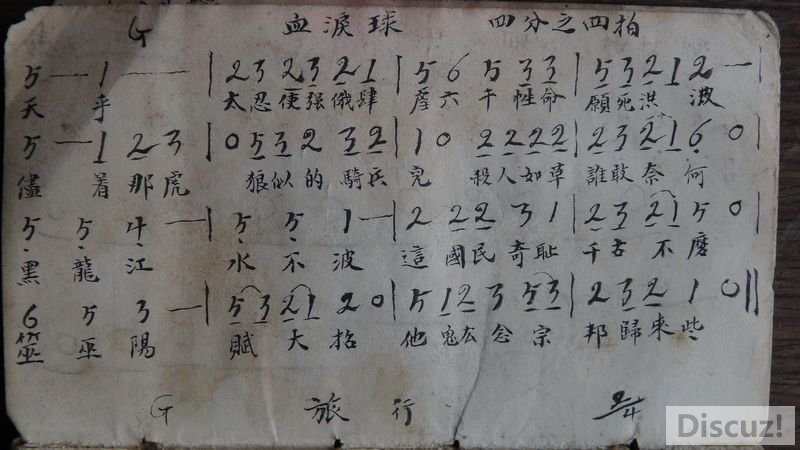 G 血淚球 四分之四拍
5 — 1 — — | 2 3 2 3 2 1 | 5 6 5 3 3 | 5 3 2 1 2 —
天 乎 太忍使强俄肆 塵六千性命 願死洪波
5 — 1 2 3 | 0 5 3 2 3 2 | 1 0 2 2 2 2 | 2 3 2 1 6 0
儘 着那虎 狼似的騎兵 兒 殺人如草 誰敢奈何
5 5 4 — | 5 5 1 — | 2 2 2 3 1 | 2 3 2 1 5 0
黑龍江 水不波 這國民奇恥 千古不磨
6 5 3 — | 5 3 2 1 2 0 | 5 1 2 3 5 3 | 2 3 2 1 0 ||
筮巫陽 賦大招 他鬼
念宗邦歸來些
G 旅行 2/4
Discuz!